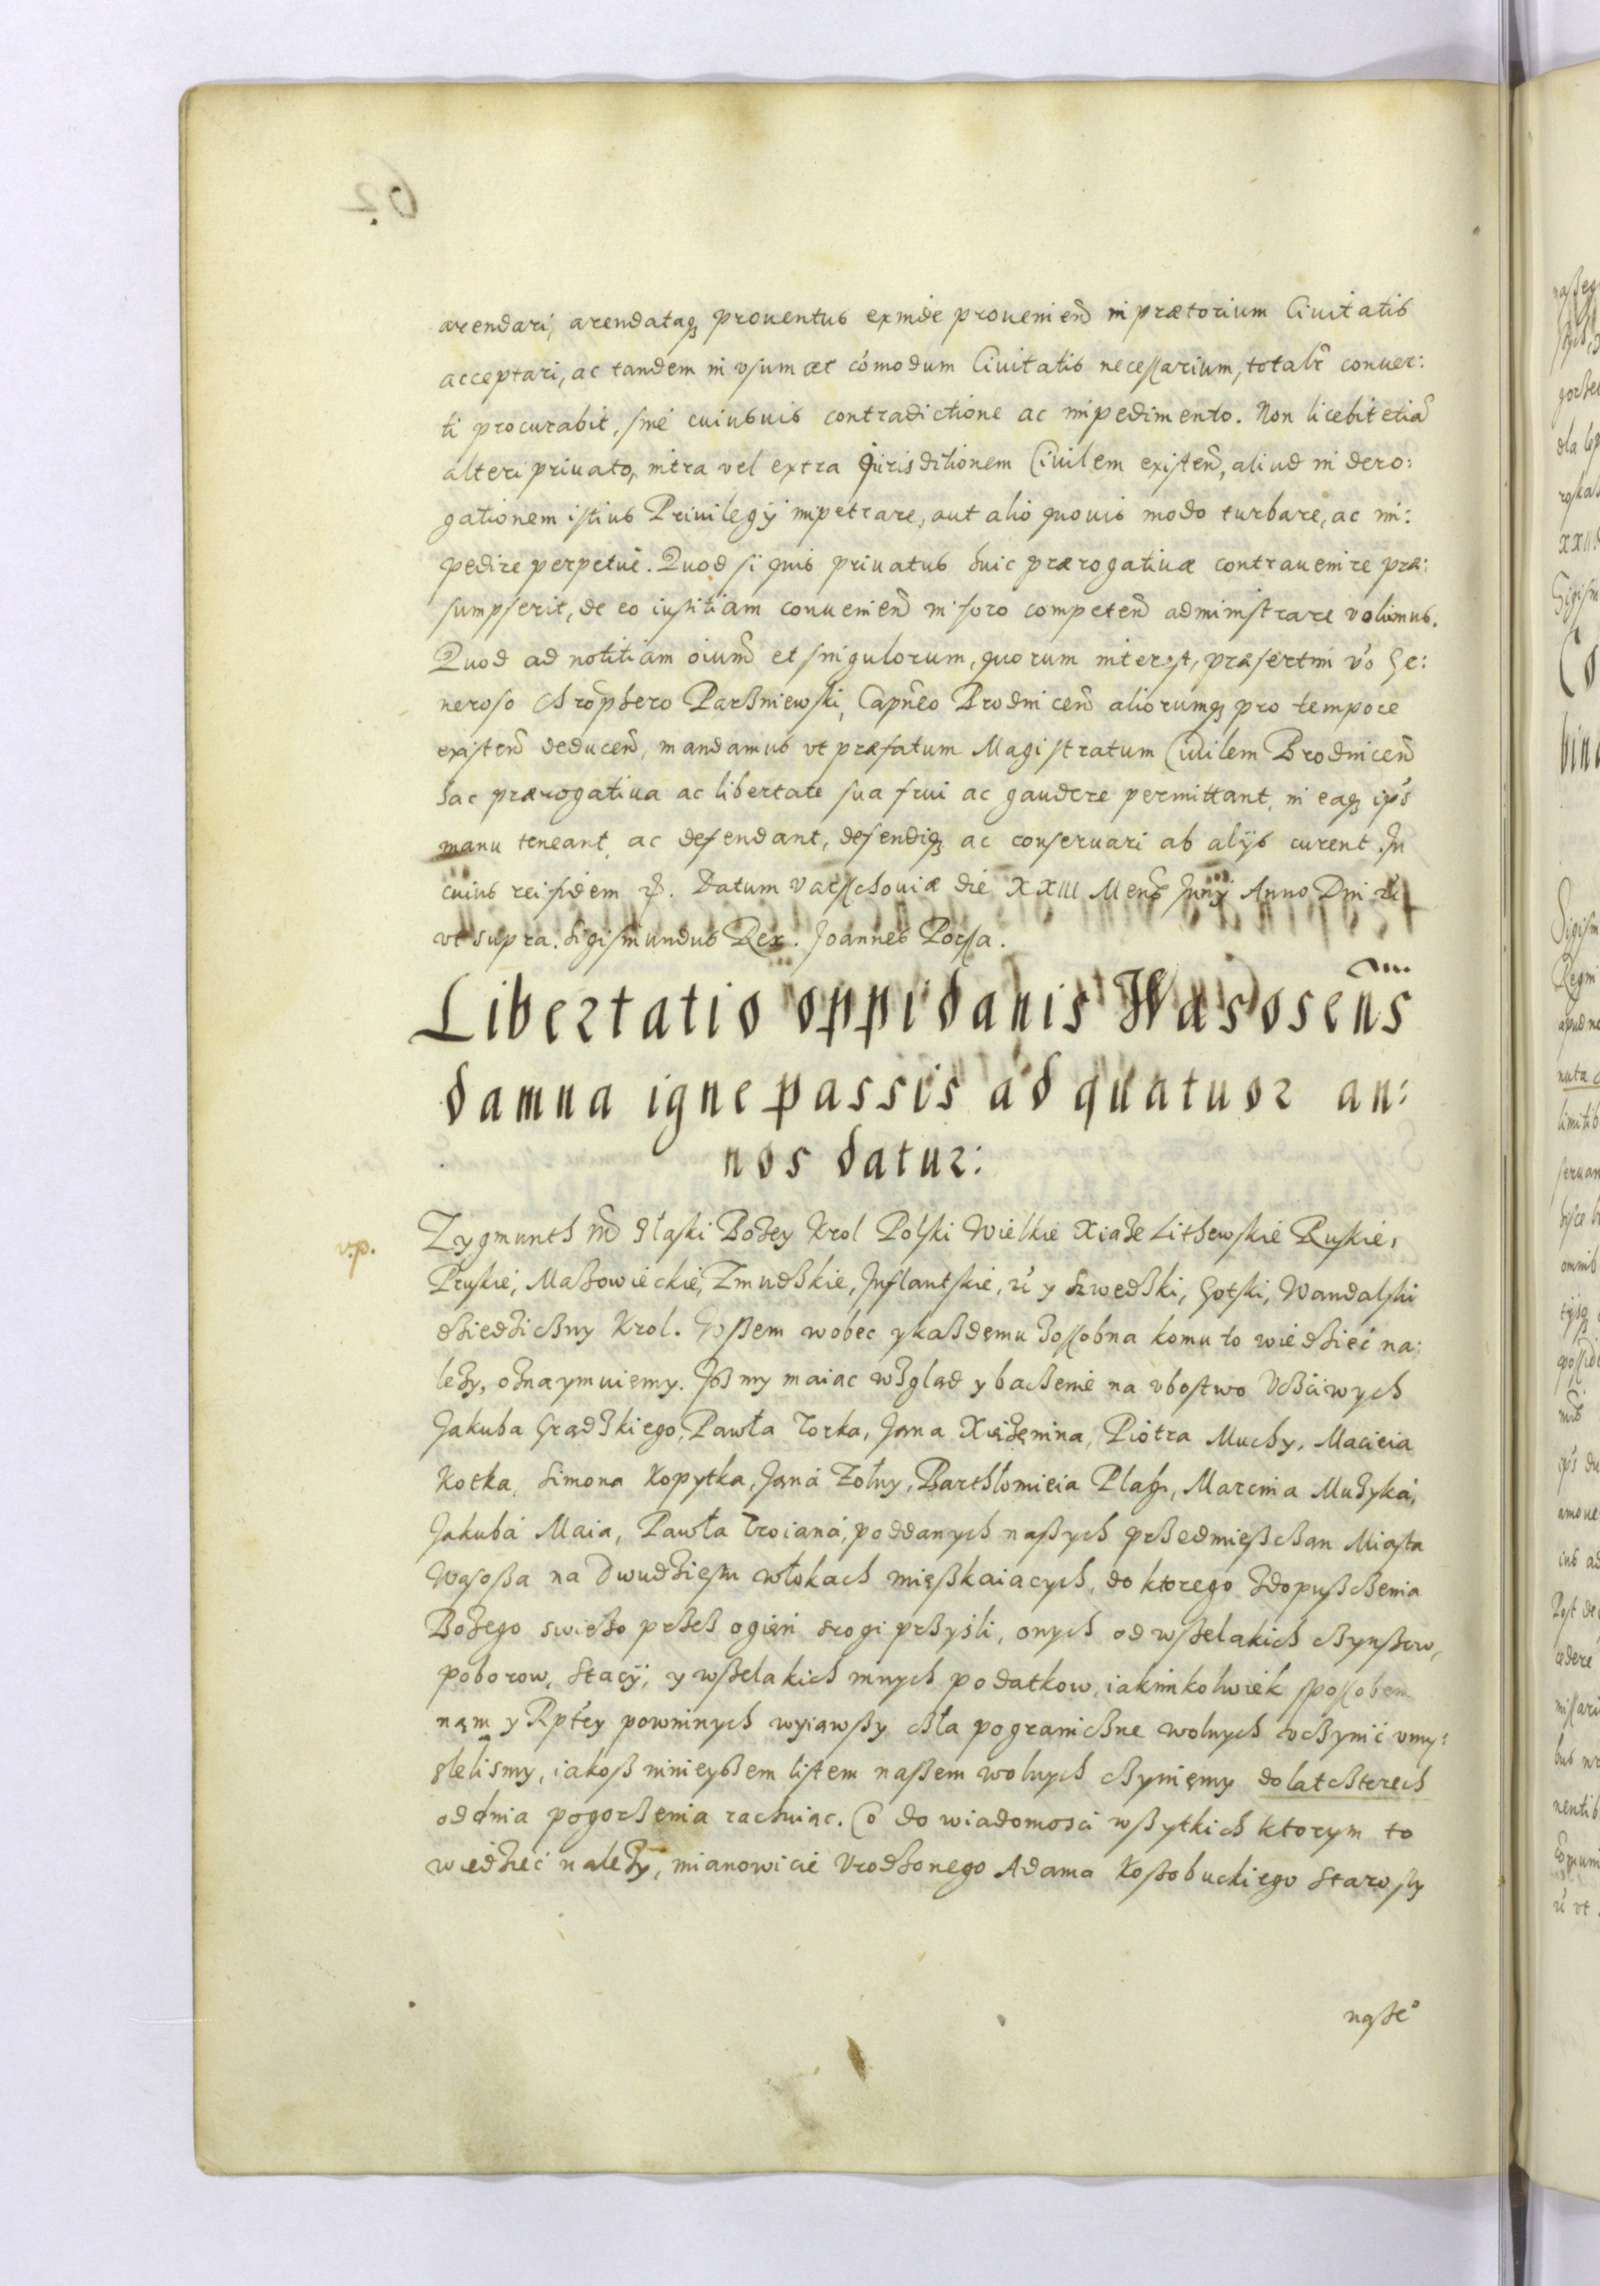 arendari, arendataq3 prouentus exinde prouenien̄ in prætorium Ciuitatis
acceptari, ac tandem in vsum æt cómodum Ciuitatis necessarium, totalr̄ conuer:
ti procurabit, sine cuiusuis contradictione ac inpedimento. Non licebit etiā
alteri priuato, intra vel extra Jurisditionem Ciuilem existen̄, aliud in dero:
gationem istius Priuilegÿ inpetrare, aut alio quouis modo turbare, ac in:
pedire perpetue. Quod si quis priuatus huic prærogatiuæ contrauenire præ:
sumpserit, de eo iustitiam conuenien̄ in foro competen̄ administrare volumus.
Quod ad notitiam oiun̄ et singulorum, quorum interest, præsertim v́o Ge:
neroso Chrōphero Parßniewski, Capn̄eo Brodnicen̄ aliorumq3 pro tempore
existen̄ deducen̄, mandamus vt præfatum Magistratum Ciuilem Brodnicen̄
hac prærogatiua ac libertate sua frui ac gaudere permittant, in eaq3 ip̄s
manu teneant, ac defendant, defendiq3 ac conseruari ab alÿs curent. In
cuius rei fidem Datum Varsschouiæ die XXIII Mens̄ Junÿ Anno Dni
vt supra. Sigismundus Rex. Joannes Borssa.
Libertatio oppidanis Wasosen̄s
damna igne passis ad quatuor an:
nos datur:
v.p.
Zygmunth Páski Bożey Krol Polski Wielkie Xiaże Lithewskie Ruskie,
Pruskie, Mazowieckie, Zmudzkie, Inflantskie, y Szwedzki, Gotski, Wandalski
dziedziczny Krol. wobec y każdemu zossobna komu to wiedzieć na:
leży, oznaymuiemy. Jż my maiac wzgląd y baczenie na vbostwo Vcżciwych
Jakuba Grądzkiego, Pawła Torka, Jana Xiążęnina, Piotra Muchy, Macieia
Kotka, Simona Kopytka, Janá Zołny, Barthlomieia Marcina Mużyká,
Jakubá Maia, Pawła Troianá, poddanych naßych przedmießczan Miasta
Wąsoßa na Dwudziestu włokach mießkaiacych, do ktorego zdopußczenia
Bożego swiezo przez ogień srogi przyśli, onych od wßelakich czynßow,
poborow, stacÿ, y wßelakich innych podatkow, iakimkolwiek spossobem
nąm y Rptéy powinnych wyiąwßy cła pograniczne wolnych vczynić vmy:
slelismy, iakoß ninieyßem listem naßem wolnych czynięmy do lat czterech
od dnia pogorzenia rachuiąc. Co do wiadomosci wßytkich ktorym to
wiedzieć należy, mianowicie Vrodzonego Adama Koßobuckiego Starosty
naßeº